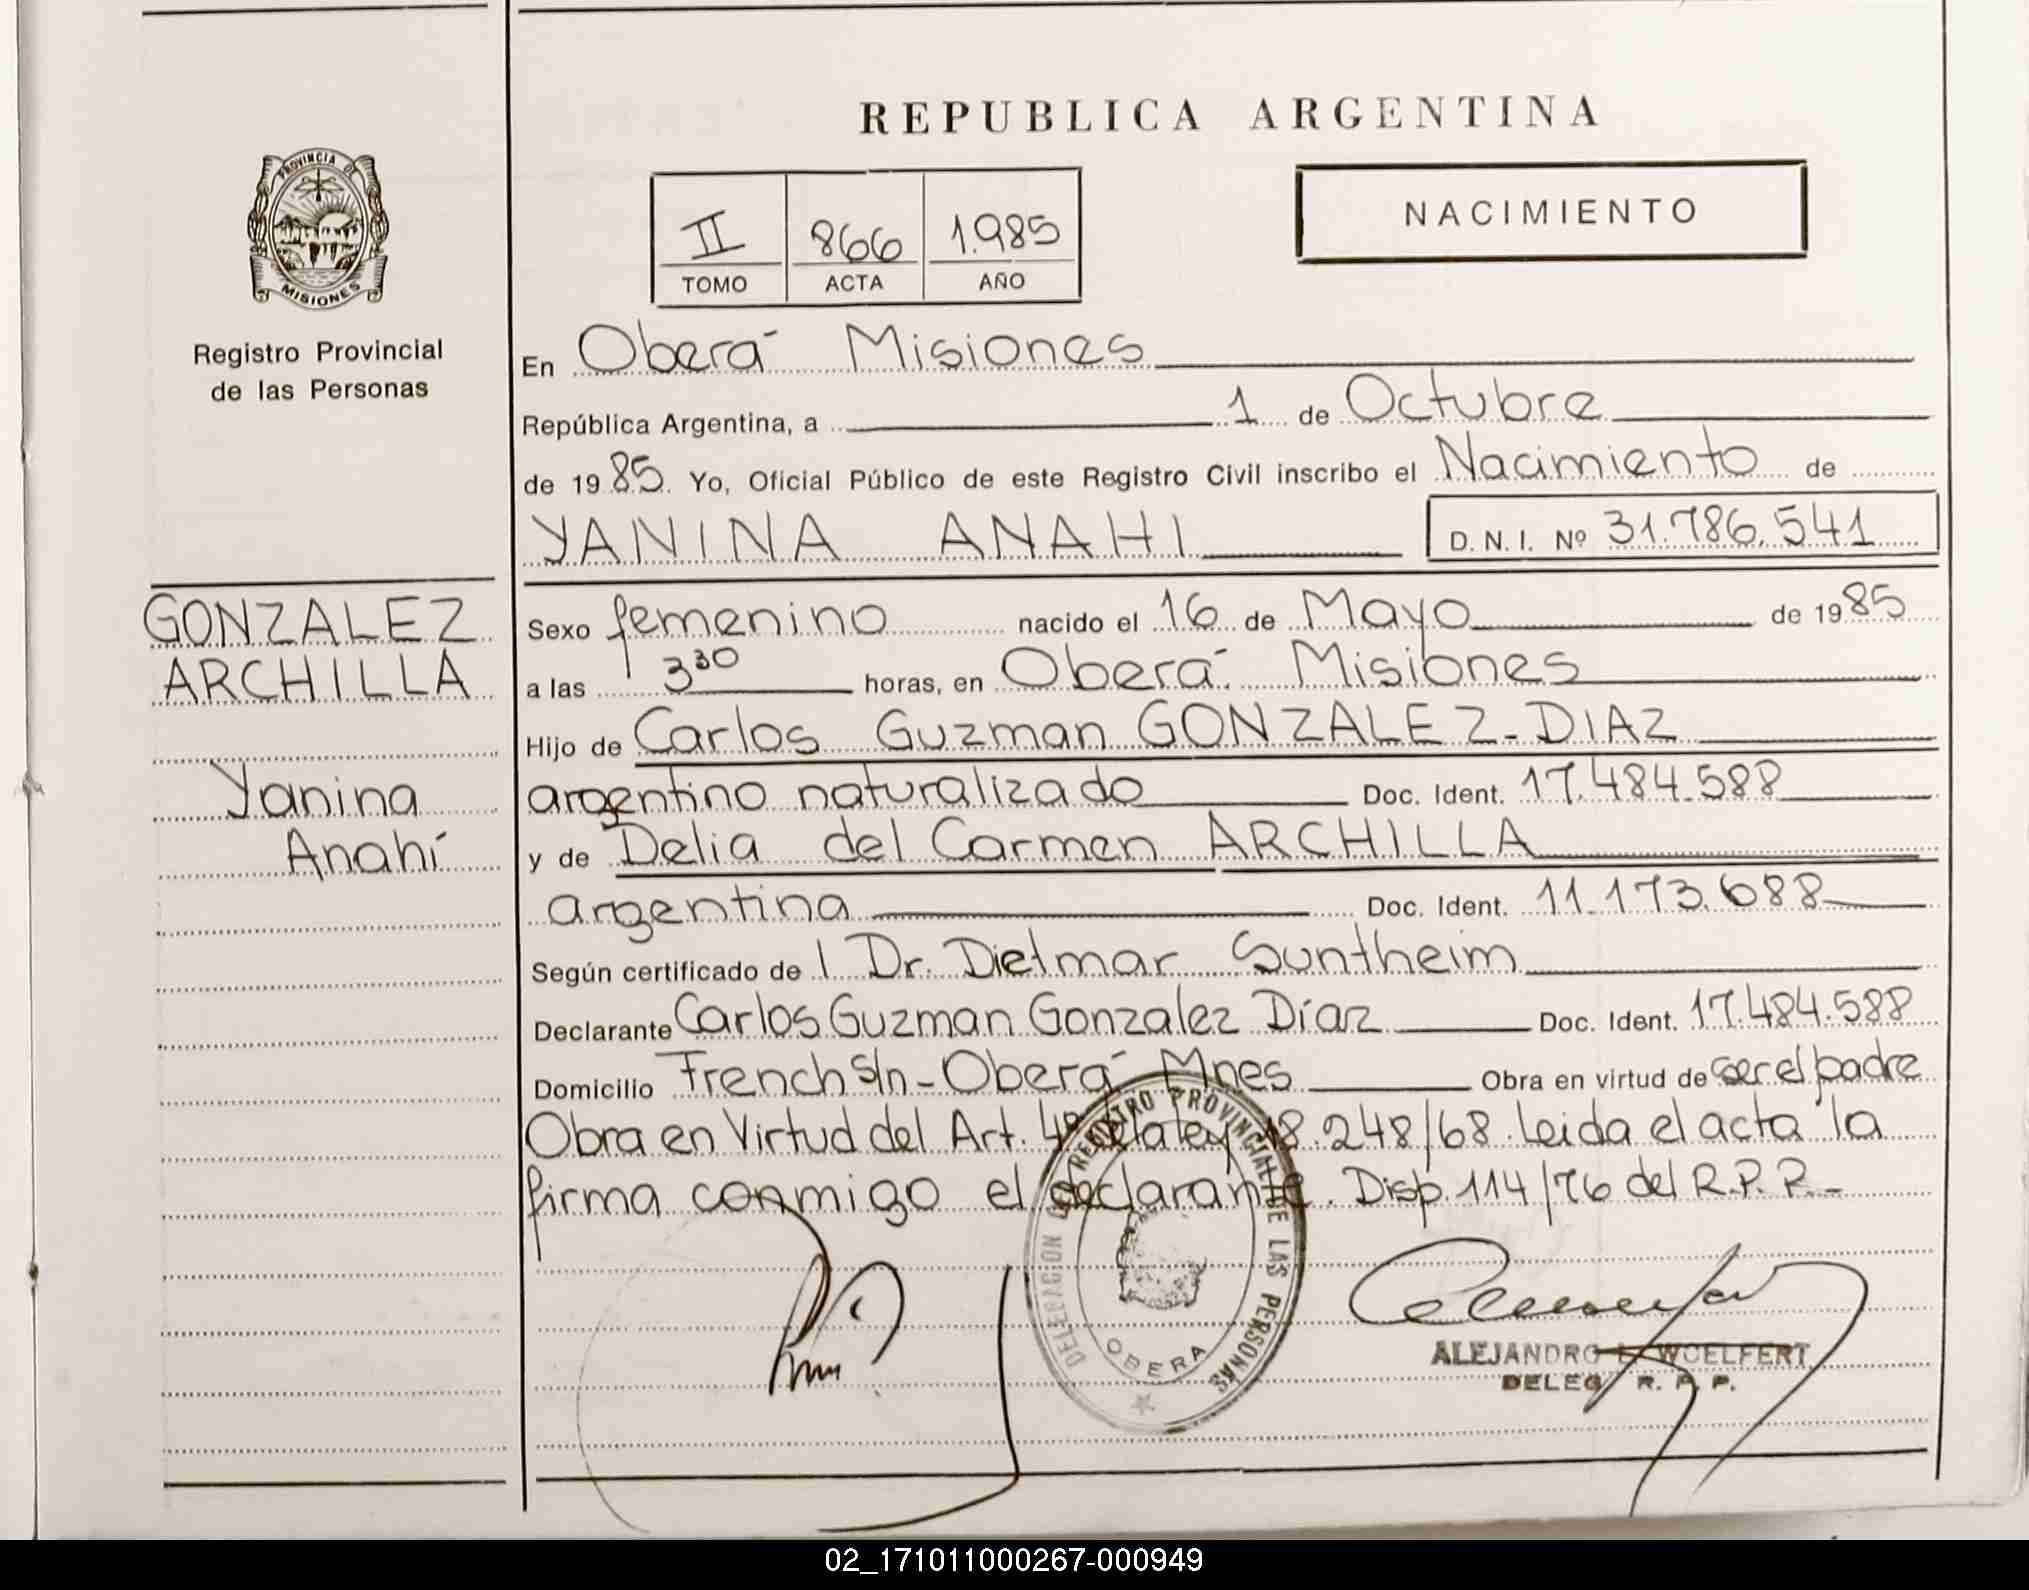 REPUBLICA ARGENTINA
PROVINCIA DE
MISIONES
Registro Provincial
de las Personas
II 866 1.985
TOMO ACTA AÑO
NACIMIENTO
En Oberá Misiones
República Argentina, a 1 de Octubre
de 1985. Yo, Oficial Público de este Registro Civil inscribo el Nacimiento de
YANINA ANAHI D. N. I. Nº 31.786.541
GONZALEZ
ARCHILLA
Yanina
Anahí
Sexo femenino nacido el 16 de Mayo de 1985
a las 3 30 horas, en Oberá Misiones
Hijo de Carlos Guzman GONZALEZ-DIAZ
argentino naturalizado Doc. Ident. 17.484.588
y de Delia del Carmen ARCHILLA
argentina Doc. Ident. 11.173.688
Según certificado de l Dr. Dietmar Suntheim
Declarante Carlos Guzman Gonzalez Díaz Doc. Ident. 17.484.588
Domicilio French S/n - Oberá Mnes Obra en virtud de ser el padre
Obra en Virtud del Art. de la ley 18.248/68. Leida el acta la
firma conmigo el declarante. Disp. 114/76 del R.P.P.-
DELEGACION REGISTRO PROVINCIAL DE LAS PERSONAS
OBERA
ALEJANDRO L. WOELFERT
DELEG R. P. P.
02_171011000267-000949